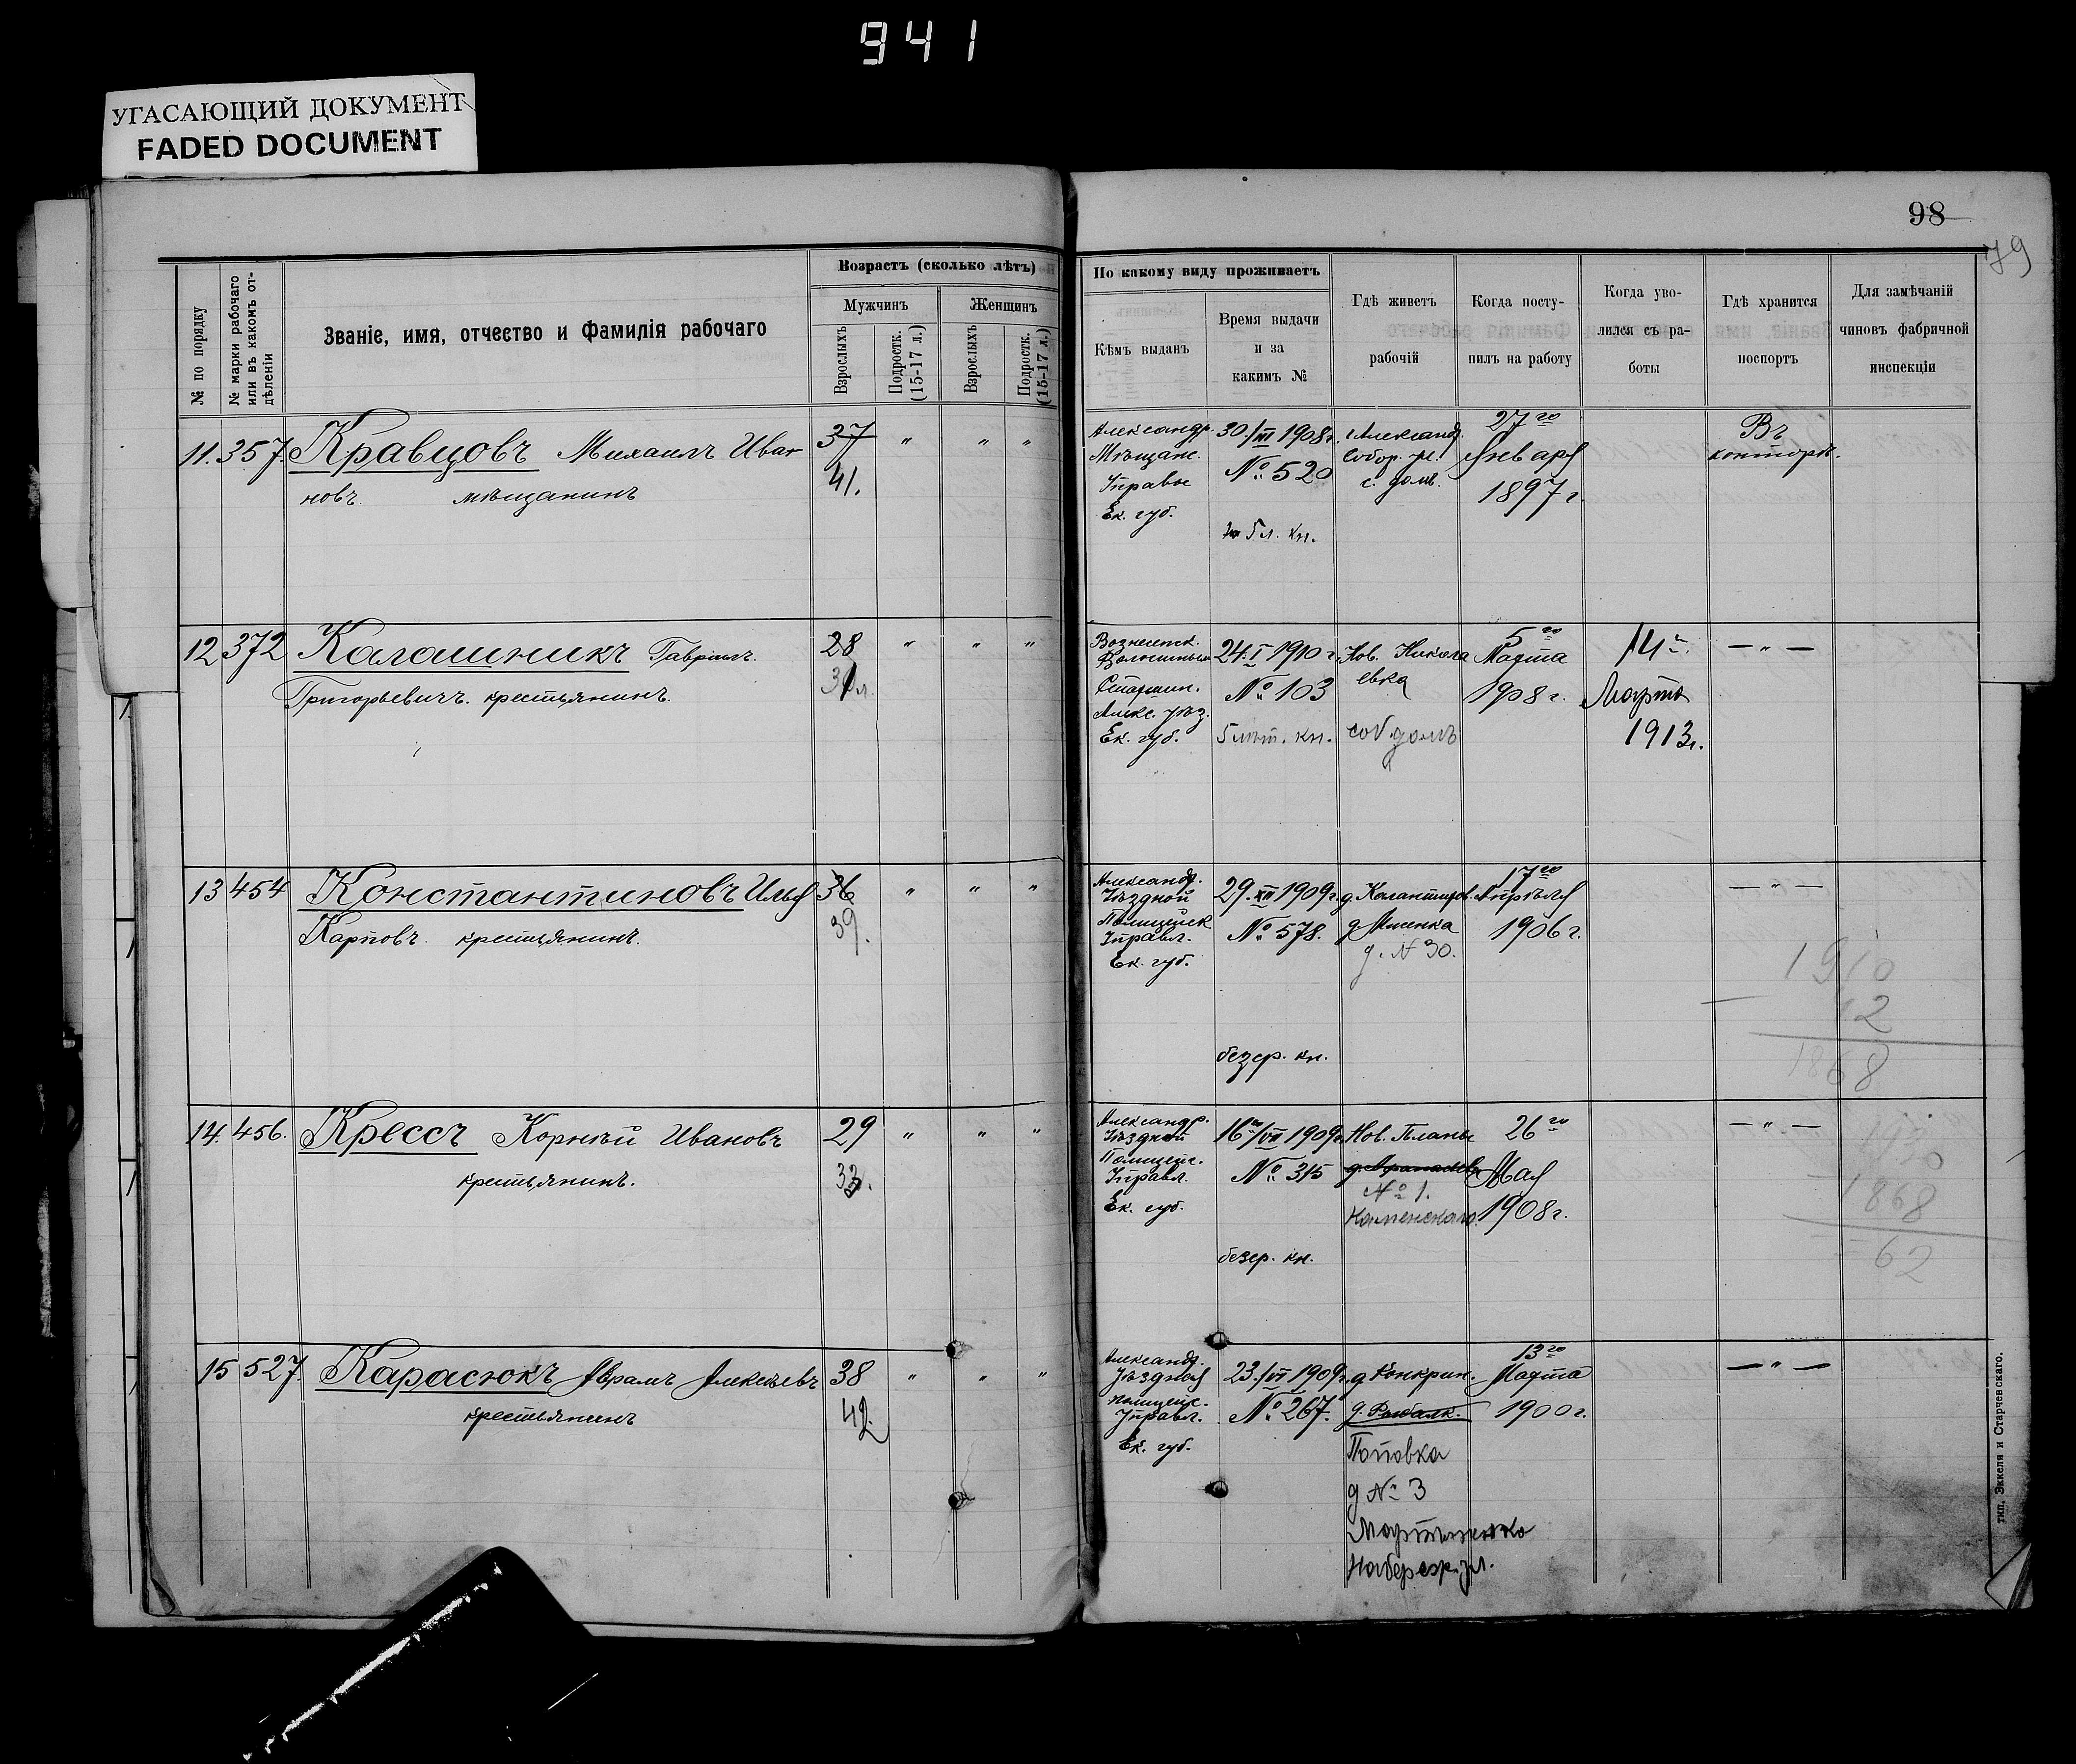 941
УГАСАЮЩИЙ ДОКУМЕНТ
FADED DOCUMENT
98
79
№ по порядку
№ марки рабочаго
или въ какомъ от-
дѣленіи
Званіе, имя, отчество и фамилія рабочаго
Возрастъ (сколько лѣтъ)
Мужчинъ
Женщинъ
Взрослыхъ
Подростк.
(15-17 л.)
Взрослыхъ
Подростк.
(15-17 л.)
По какому виду проживаетъ
Кѣмъ выданъ
Время выдачи
и за
какимъ №
Гдѣ живетъ
рабочій
Когда посту-
пилъ на работу
Когда уво-
лился съ ра-
боты
Гдѣ хранится
поспортъ
Для замѣчаній
чиновъ фабричной
инспекціи
11. 357. Кравцовъ Михаилъ Иван
новъ. мѣщанинъ
37 " " "
41.
Александр.
Мѣщанс.
Управы
Ек. губ.
30/III 1908 г.
№ 520
5 л. кн.
г. Александ.
Собор. ул.
с. домъ.
27го
Января
1897 г.
Въ
конторѣ.
12 372 Калашникъ Гавріилъ
Григорьевичъ. крестьянинъ.
28 " " "
31 л.
Вознесенск.
Волостным
Старшин.
Алекс. уѣз.
Ек. губ.
24.I 1910 г.
№ 103
5 лѣт. кн.
Нов. Никола
евка
соб. домъ
5го
Марта
1908 г.
14
Марта
1913 г.
— " —
13 454 Константиновъ Илья
Карповъ. крестьянинъ.
36 " " "
39.
Александр.
Уѣздной
Полицейск
Управл.
Ек. губ.
29.XII 1909 г.
№ 578.
безср. кн.
д. № 30.
17го
Апрѣля
1906 г.
— " —
1910
12
1868
14. 456. Крессъ Корнѣй Ивановъ
крестьянинъ.
29 " " "
33.
Александр.
Уѣздной
Полицейс.
Управл.
Ек. губ.
16го/VII 1909 г.
№ 315
безср. кн.
Нов. Планы
№ 1.
Каменскаго
26го
Мая
1908 г.
— " —
1868
62
15 527. Карасюкъ Аврамъ Алексѣевъ
крестьянинъ
38 " " "
42
Александр.
Уѣздная
полицейс.
Управл.
Ек. губ.
23./VI 1909 г.
№ 267.
д. Рыбалк.
Поповка
д № 3
Мартыненко
Набереж. ул.
13го
Марта
1900 г.
— " —
тип. Эккеля и Старчевскаго.